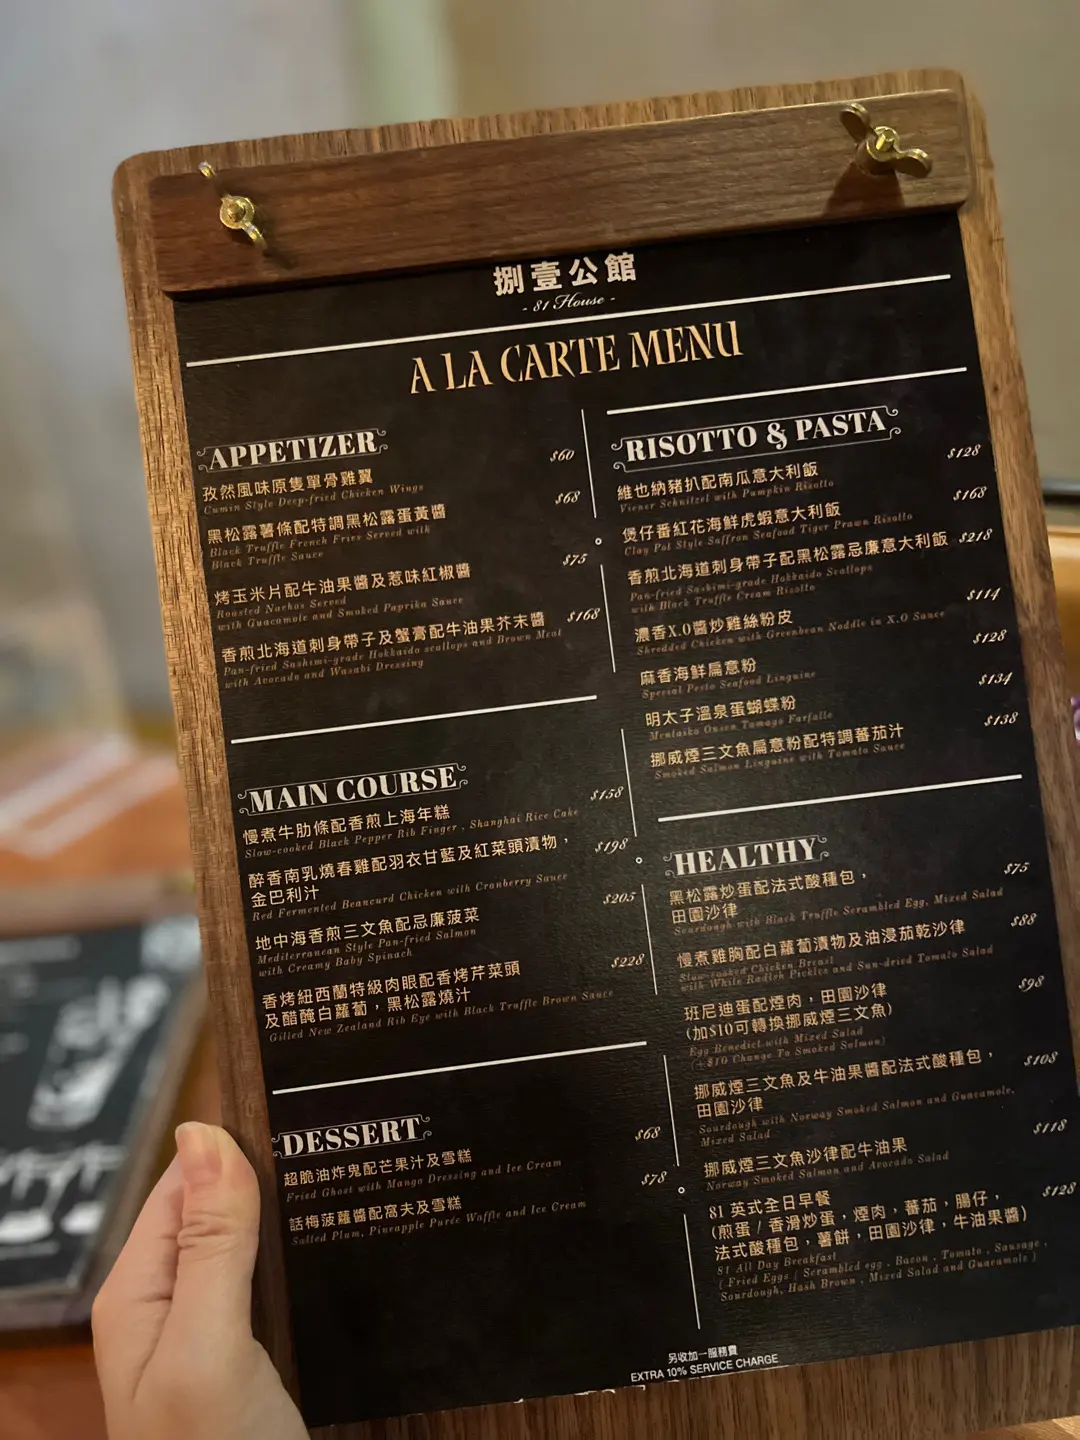 捌壹公館
- 81 House -
A LA CARTE MENU
APPETIZER
孜然風味原隻單骨雞翼 $60
Cumin Style Deep-fried Chicken Wings
黑松露薯條配特調黑松露蛋黃醬 $68
Black Truffle French Fries Served with
Black Truffle Sauce
烤玉米片配牛油果醬及惹味紅椒醬 $75
Roasted Nachos Served
with Guacamole and Smoked Paprika Sauce
香煎北海道刺身帶子及蟹膏配牛油果芥末醬 $168
Pan-fried Sashimi-grade Hokkaido scallops and Brown Meat
with Avocado and Wasabi Dressing
MAIN COURSE
慢煮牛肋條配香煎上海年糕 $158
Slow-cooked Black Pepper Rib Finger , Shanghai Rice Cake
醉香南乳燒春雞配羽衣甘藍及紅菜頭漬物， $198
金巴利汁
Red Fermented Beancurd Chicken with Cranberry Sauce
地中海香煎三文魚配忌廉菠菜 $205
Mediterranean Style Pan-fried Salmon
with Creamy Baby Spinach
香烤紐西蘭特級肉眼配香烤芹菜頭 $228
及醋醃白蘿蔔，黑松露燒汁
Gilled New Zealand Rib Eye with Black Truffle Brown Sauce
DESSERT
超脆油炸鬼配芒果汁及雪糕 $68
Fried Ghost with Mango Dressing and Ice Cream
話梅菠蘿醬配窩夫及雪糕 $78
Salted Plum, Pineapple Purée Waffle and Ice Cream
RISOTTO & PASTA
維也納豬扒配南瓜意大利飯 $128
Viener Schnitzel with Pumpkin Risotto
煲仔番紅花海鮮虎蝦意大利飯 $168
Clay Pot Style Saffron Seafood Tiger Prawn Risotto
香煎北海道刺身帶子配黑松露忌廉意大利飯 $218
Pan-fried Sashimi-grade Hokkaido Scallops
with Black Truffle Cream Risotto
濃香X.O醬炒雞絲粉皮 $114
Shredded Chicken with Greenbean Noddle in X.O Sauce
麻香海鮮扁意粉 $128
Special Pesto Seafood Linguine
明太子溫泉蛋蝴蝶粉 $134
Mentaiko Onsen Tamago Farfalle
挪威煙三文魚扁意粉配特調蕃茄汁 $138
Smoked Salmon Linguine with Tomato Sauce
HEALTHY
黑松露炒蛋配法式酸種包， $75
田園沙律
Sourdough with Black Truffle Scrambled Egg, Mixed Salad
慢煮雞胸配白蘿蔔漬物及油浸茄乾沙律 $88
Slow-cooked Chicken Breast
with White Radish Pickles and Sun-dried Tomato Salad
班尼迪蛋配煙肉，田園沙律 $98
(加$10可轉換挪威煙三文魚)
Egg Benedict with Mixed Salad
(+$10 Change To Smoked Salmon)
挪威煙三文魚及牛油果醬配法式酸種包， $108
田園沙律
Sourdough with Norway Smoked Salmon and Guacamole,
Mixed Salad
挪威煙三文魚沙律配牛油果 $118
Norway Smoked Salmon and Avocado Salad
81 英式全日早餐 $128
(煎蛋 / 香滑炒蛋，煙肉，蕃茄，腸仔，
法式酸種包，薯餅，田園沙律，牛油果醬)
81 All Day Breakfast
( Fried Eggs / Scrambled egg , Bacon , Tomato , Sausage ,
Sourdough, Hash Brown , Mixed Salad and Guacamole )
另收加一服務費
EXTRA 10% SERVICE CHARGE